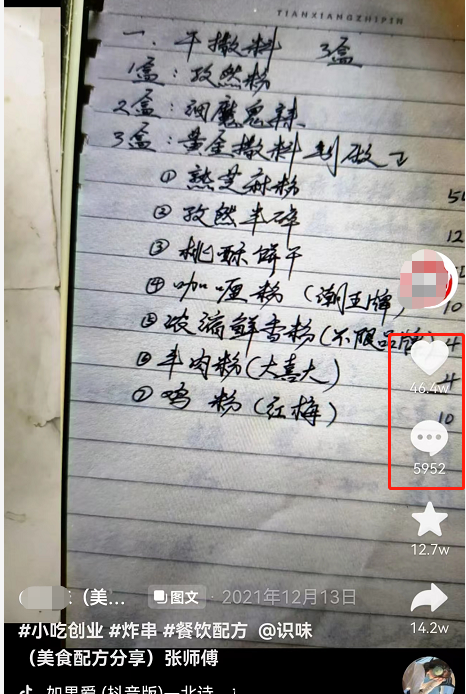 TIANXIANGZHIPIN
一. 干撒料 3盒
1盒：孜然粉
2盒：细魔鬼辣
3盒：黄金撒料制做
① 熟芝麻粉
② 孜然半碎 12
③ 桃酥饼干
④ 咖喱粉（潮王牌, 10
⑤ 浓流鲜香粉（不限品牌） 4
⑥ 羊肉粉（大喜大） 4
⑦ 鸡粉（红梅） 10
46.4w
5952
12.7w
14.2w
（美... 图文 · 2021年12月13日
#小吃创业 #炸串 #餐饮配方 @识味
（美食配方分享）张师傅
如果爱 (抖音版)—北诗